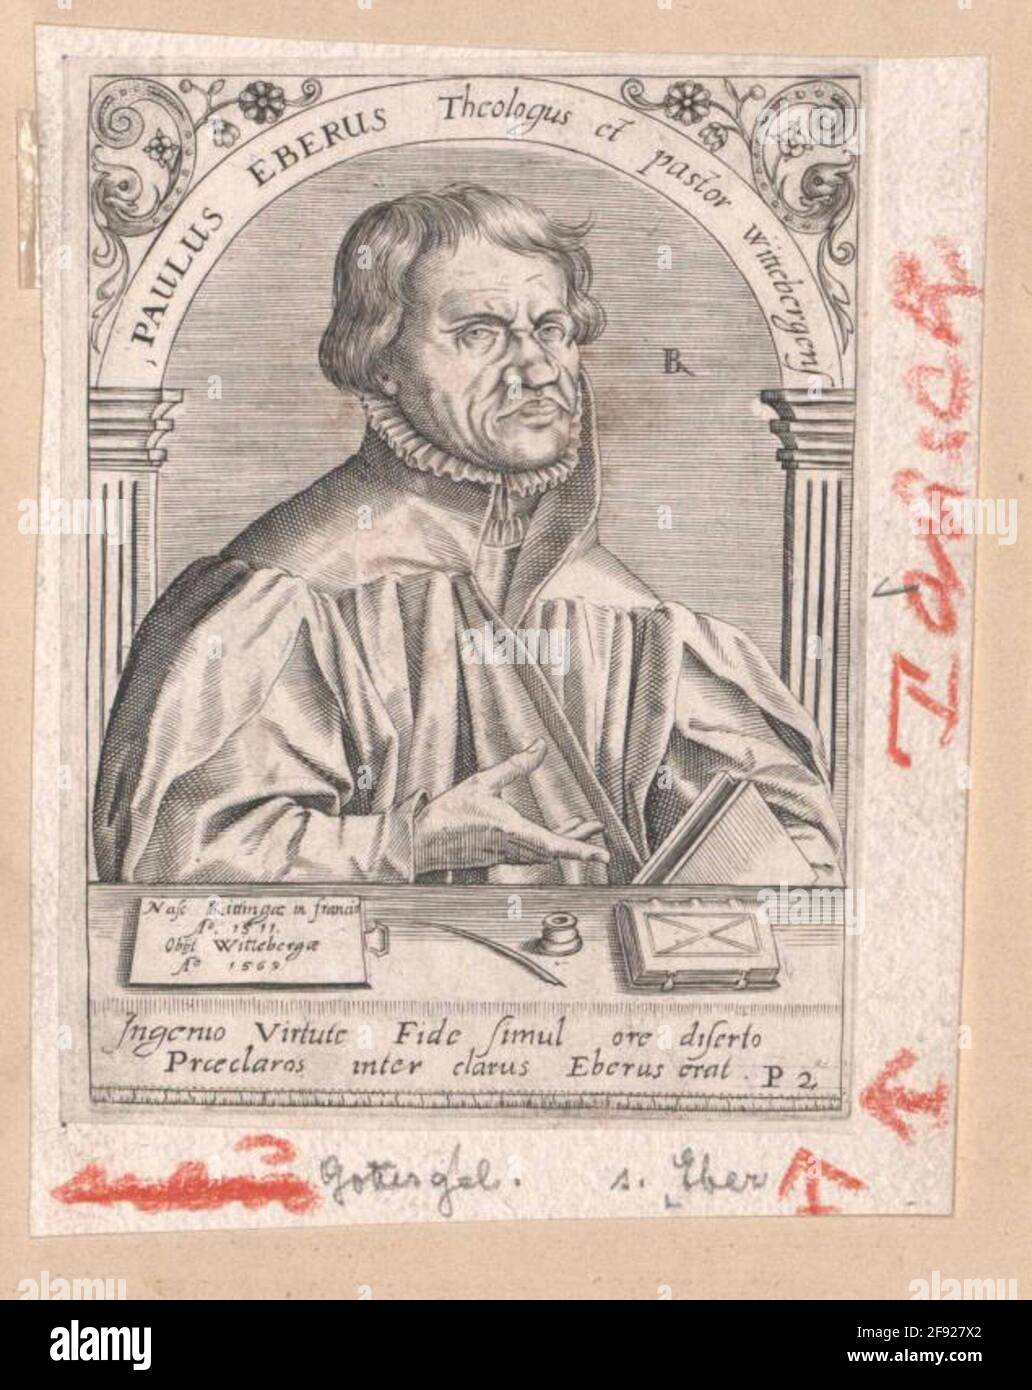 PAULUS EBERUS Theologus et pastor wittebergens
BR
Nasc Kittingæ in francia
Aº. 1511.
Obijt Wittebergæ
Aº 1569
Ingenio Virtute Fide simul ore diserto
Præclaros inter clarus Eberus erat.
P 2
Gottesgel. s. Eber
alamy
Image ID: 2F927X2
www.alamy.com